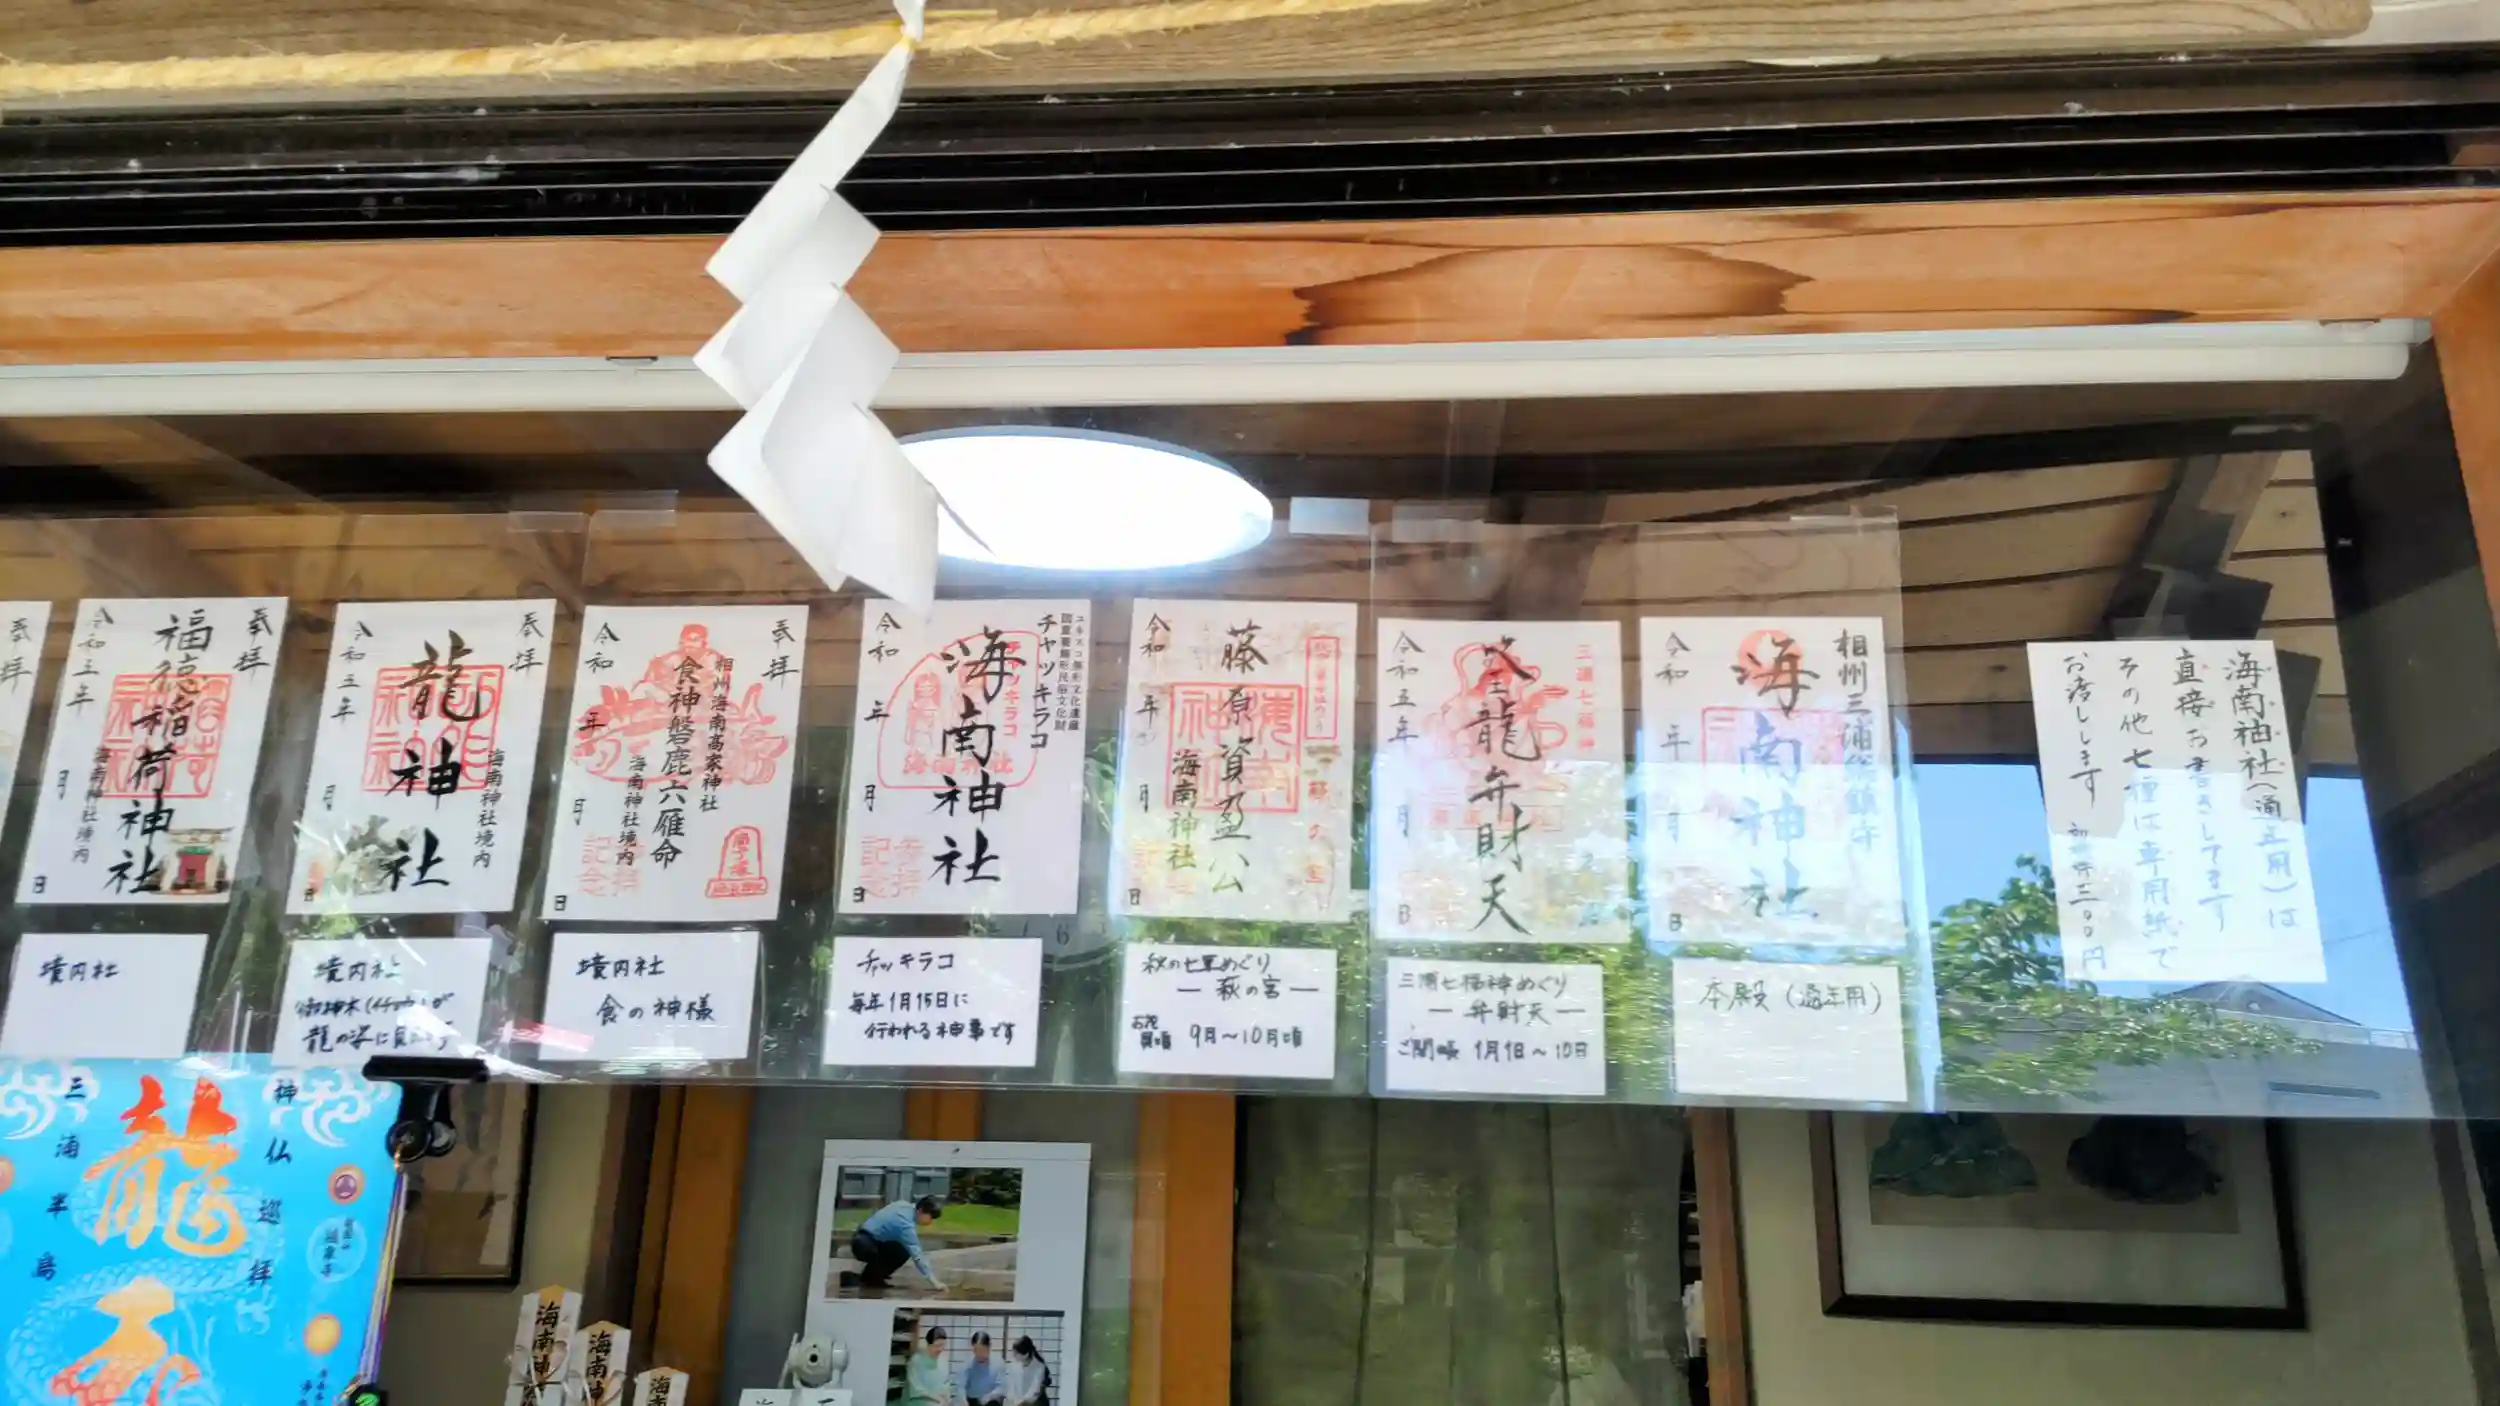 海南神社(通年用)は
直接お書きしてます
その他七種は専用紙で
お渡しします 初穂料三〇〇円
相州三浦総鎮守
海南神社
令和 年 月 日
本殿(通年用)
三浦七福神
筌龍弁財天
令和五年 月 日
三浦七福神めぐり
ー弁財天ー
ご開帳 1月1日〜10日
藤原資盈公
海南神社
令和 年 月 日
秋の七草めぐり
ー萩の宮ー
お花見頃 9月〜10月頃
ユネスコ無形文化遺産
国重要無形民俗文化財
チャッキラコ
海南神社
令和 年 月 日
参拝記念
チャッキラコ
毎年1月15日に
行われる神事です
奉拝
相州海南高家神社
食神磐鹿六雁命
海南神社境内
令和 年 月 日
参拝記念
境内社
食の神様
奉拝
龍神社
海南神社境内
令和五年 月 日
境内社
龍の姿に
奉拝
福徳稲荷神社
海南神社境内
令和五年 月 日
境内社
奉拝
神仏巡拝
龍
三浦半島
海南神
海南神
海